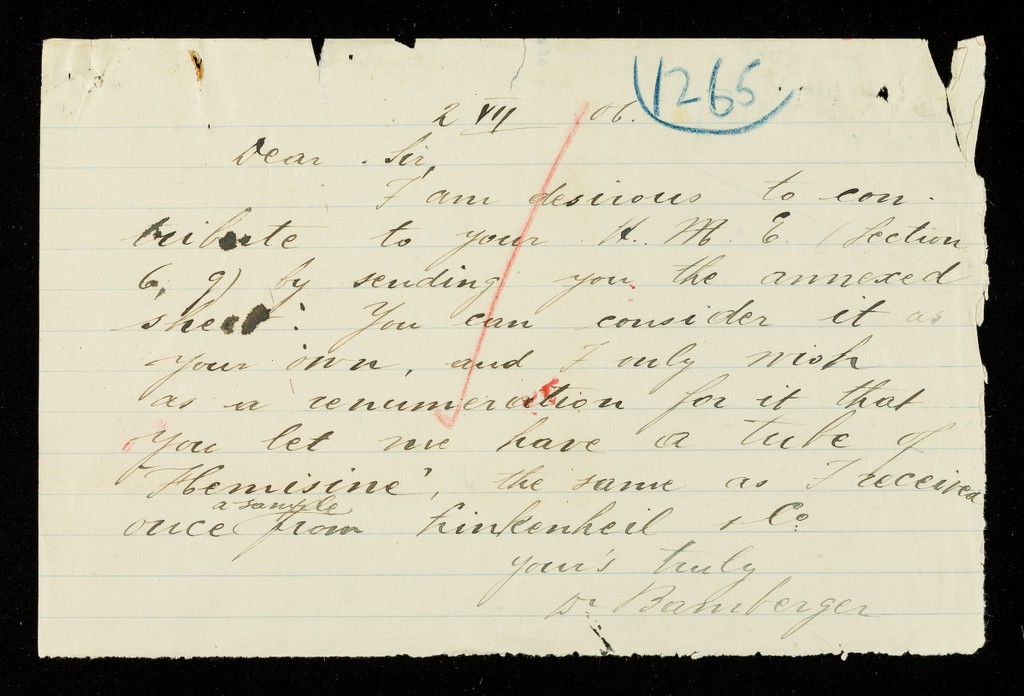 1265
2 VII 06.
Dear Sir,
I am desirous to con-
tribute to your H. M. E. (Section
6, 9) by sending you the annexed
sheet: You can consider it as
your own, and I only wish
as a renumeration for it that
you let me have a tube of
"Hemisine", the same as I received
a sample
once from Finkenheil & Co.
your's truly
Dr Bamberger